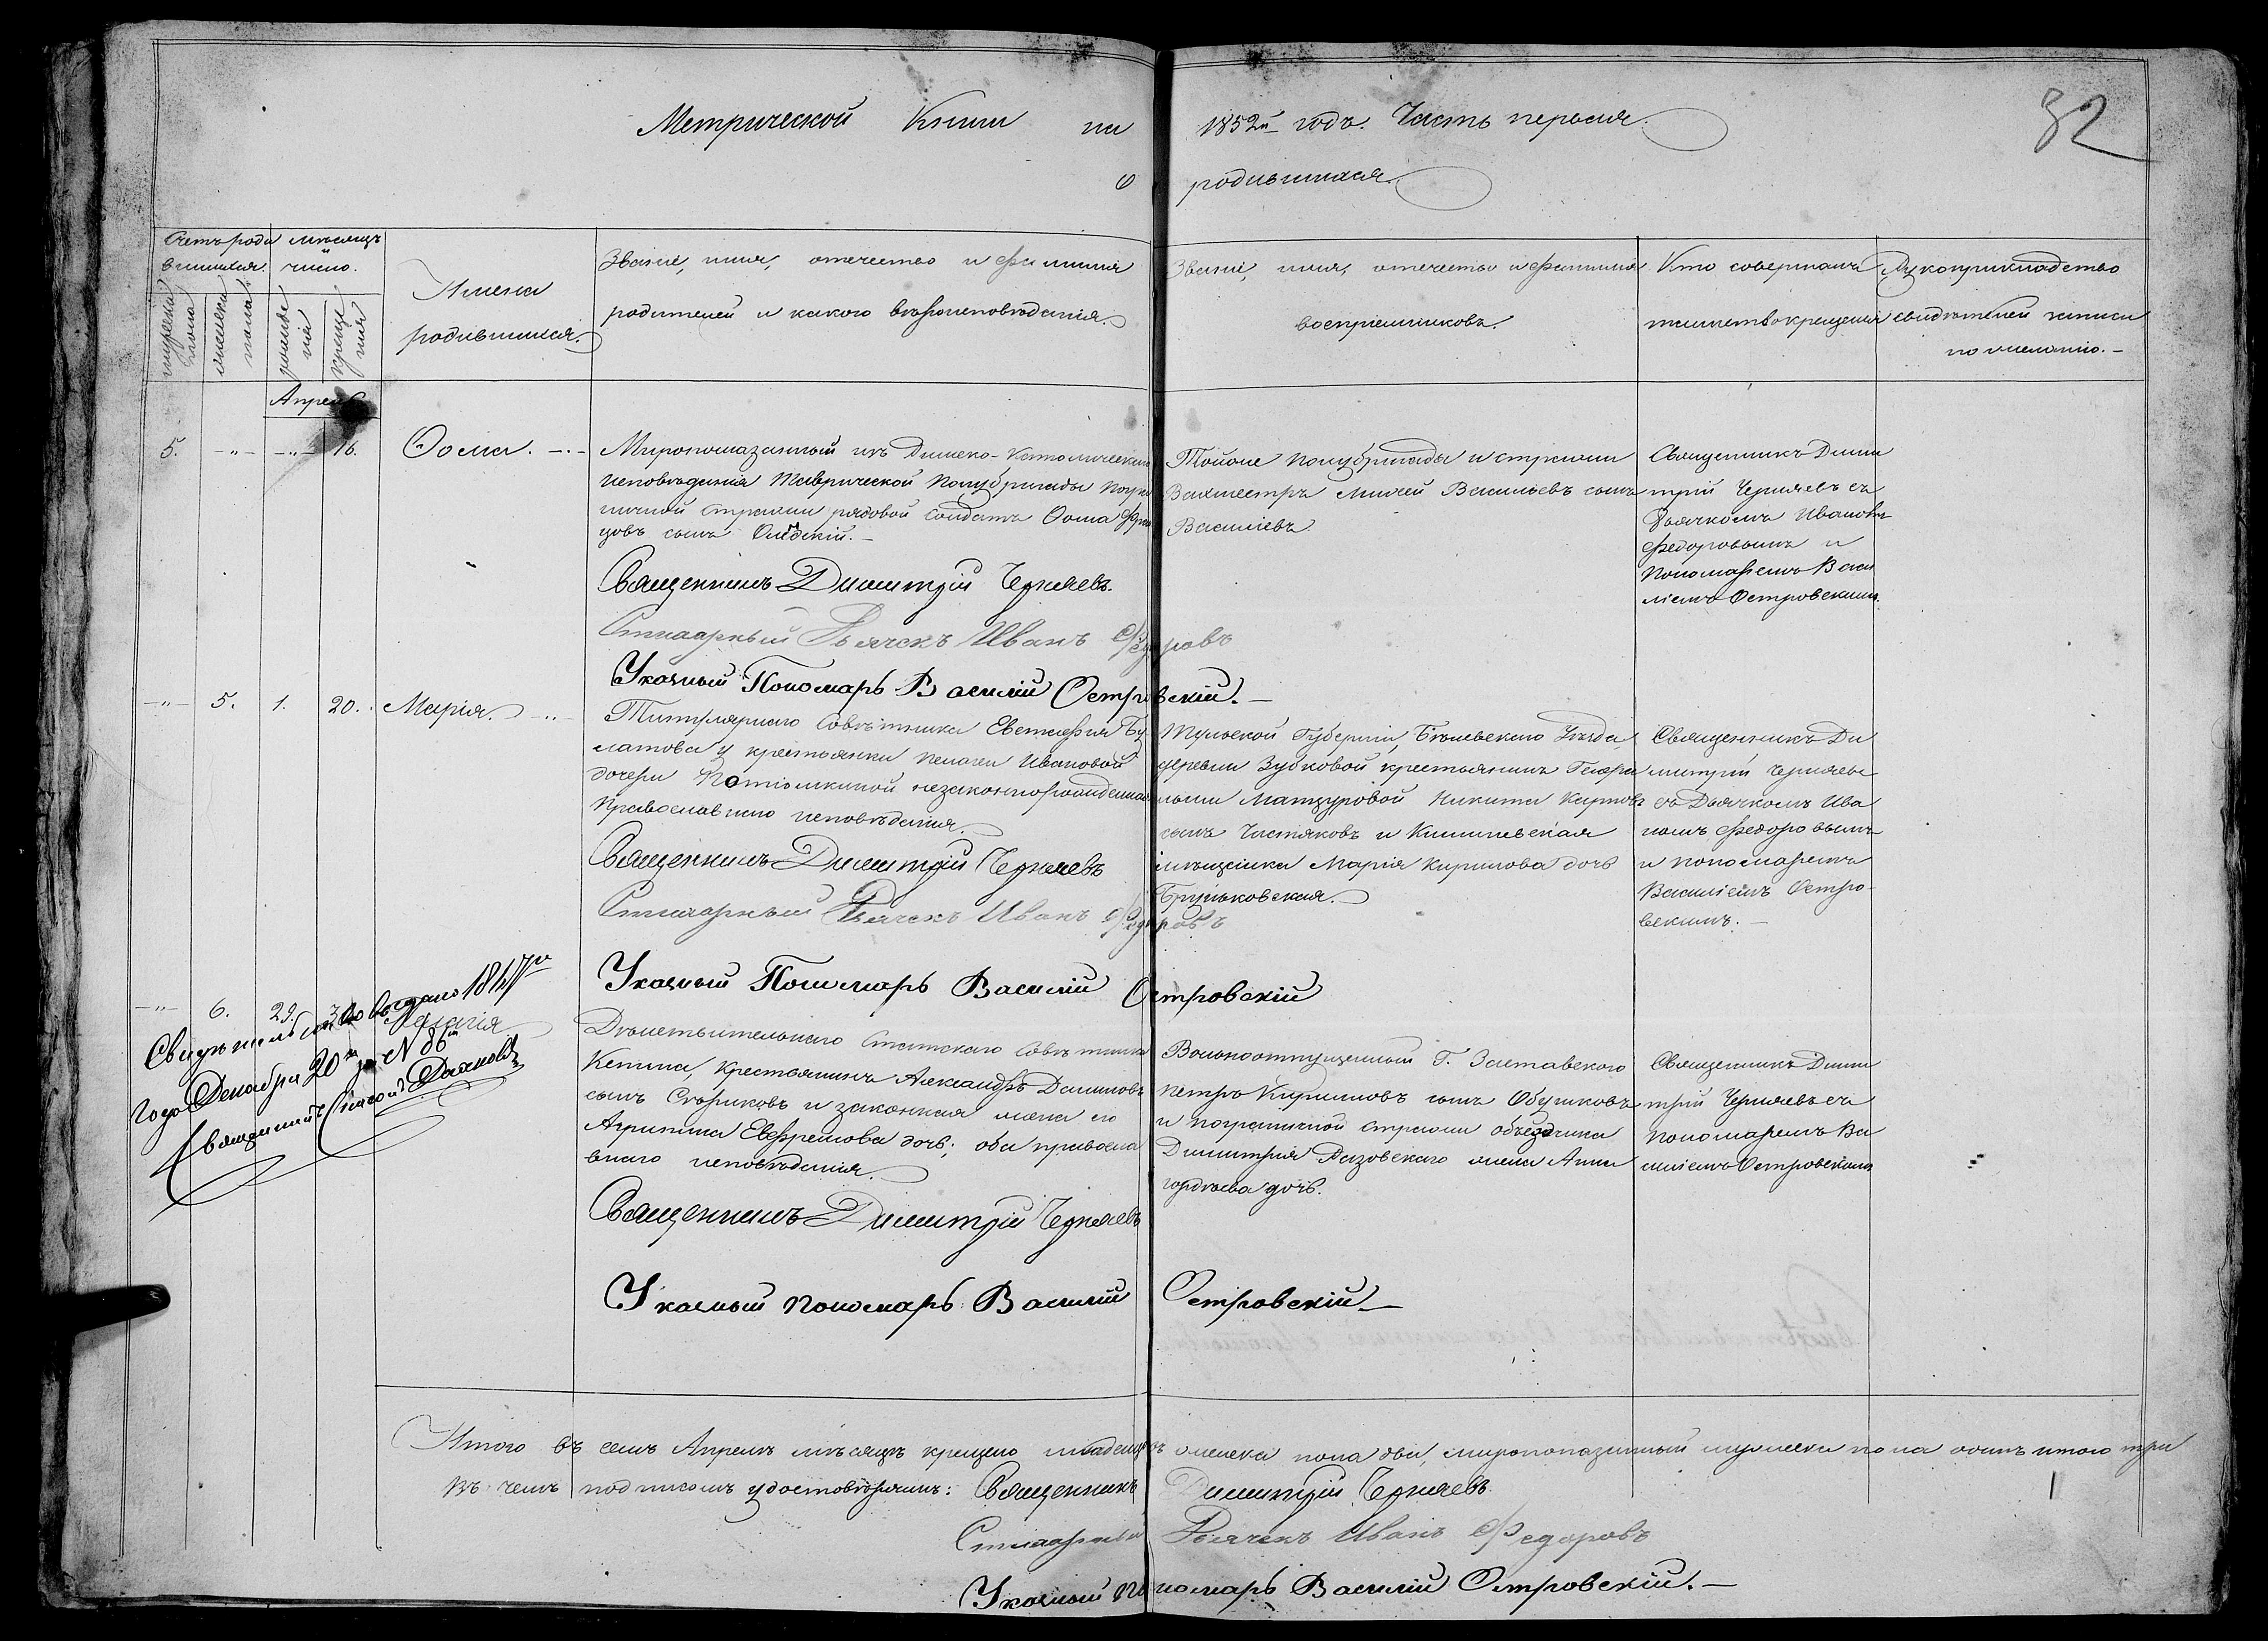 Метрической Книги на 1852й годъ. Часть первая.
32
о родившихся.
Счетъ родившихся.
мужеска пола
женска пола
мѣсяцъ число.
рожденія
крещенія
Имена родившихся.
Званіе, имя, отечество и фамилія
родителей и какого вѣроисповѣданія.
Званіе, имя, отечество и фамилія
воспріемниковъ.
Кто совершалъ
таинство крещенія
Рукоприкладство
свидѣтелей записи
по желанію.
Апрель
5. 16. Ѳома.
Миропомазанный изъ Римско-Католическаго
исповѣданія Таврической Полубригады погра
ничной стражи рядовой солдатъ Ѳома Фран
цовъ сынъ
Священникъ Димитрій Черняевъ.
Стихарный Дьячекъ Иванъ Федоровъ
Указный Пономарь Василій Островскій.
Тойже полубригады и стражи
Вахместръ Васильевъ сынъ
Василіевъ
Священникъ Дими
трій Черняевъ съ
Дьячкомъ Иваномъ
Федоровымъ и
Пономаремъ Васи
ліемъ Островскимъ.
5. 1. 20. Марія.
Титулярнаго Совѣтника Евстафія Бу
латова у крестьянки Пелагеи Ивановой
дочери Потіомкиной незаконнорожденная
Православнаго исповѣданія.
Священникъ Димитрій Черняевъ
Стихарный Дьячекъ Иванъ Федоровъ
Указный Пономарь Василій Островскій
Тульской Губерніи, Бѣлевскаго Уѣзда,
деревни Зубковой крестьянинъ
Никита Карповъ
сынъ Чистяковъ и Кишиневская
мѣщанка Марія Кирилова дочь
Бруньковская.
Священникъ Ди
митрій Черняевъ
съ Дьячкомъ Ива
номъ Федоровымъ
и пономаремъ
Василіемъ Остро
вскимъ.
6. 29. Пелагія
Свидѣтельство выдано 1847го
Года Декабря 20го за N 86м
Священникъ
Дѣйствительнаго Статскаго Совѣтника
крестьянинъ Александръ Даниловъ
сынъ Стариковъ и законная жена его
Агрипина Евфремова дочь; оба правосла
внаго исповѣданія.
Священникъ Димитрій Черняевъ
Указный пономарь: Василій Островскій
Вольноотпущенный Г. Заставскаго
Петръ Кириловъ сынъ Обушковъ
и пограничной стражи объездчика
Димитрія Разовскаго жена Анна
Гордѣева дочь.
Священникъ Дими
трій Черняевъ съ
пономаремъ Ва
силіемъ Островскимъ
Итого въ семъ Апрелѣ мѣсяцѣ крещено младенцевъ женска пола два, миропомазанный мужеска пола одинъ итого три
Въ чемъ подписомъ удостовѣряемъ: Священникъ Димитрій Черняевъ
Стихарный Дьячекъ Иванъ Федоровъ
Указный Пономарь Василій Островскій.